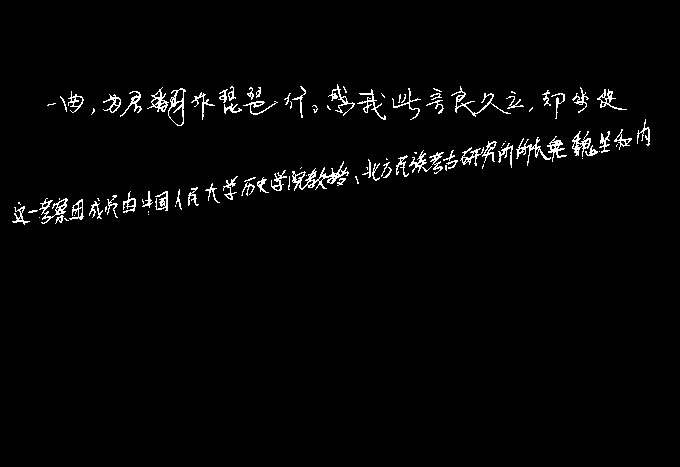 一曲,为君翻作琵琶行。感我此言良久立,却坐促
这一考察团成员由中国人民大学历史学院教授、北方民族考古研究所所长魏坚和内